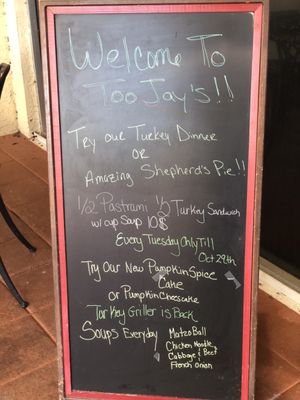 Welcome To
Too Jay's!!
Try our Turkey Dinner
OR
Amazing Shepherd's Pie!!
1/2 Pastrami 1/2 Turkey Sandwich
w/ cup Soup 10$
Every Tuesday Only Till
Oct 29th
Try Our New Pumpkin Spice
Cake
or Pumpkin Cheesecake
Turkey Griller is Back
Soups Everyday Matzo Ball
Chicken Noodle
Cabbage & Beef
French Onion